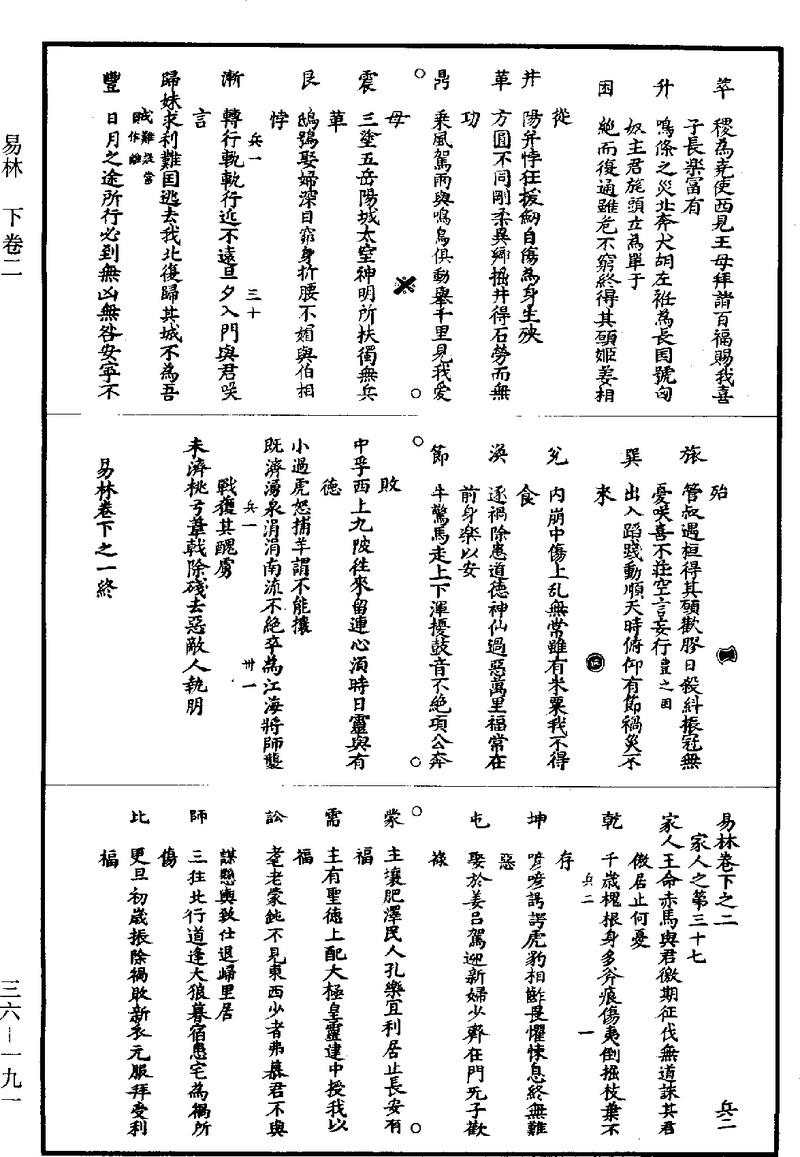 萃　稷為堯使西見王母拜請百福賜我喜
子長樂富有
升　鳴條之災北奔犬胡左衽為長國號匈
奴主君旄頭立為單于
困　絕而復通雖危不窮終得其願姬姜相
從
井　陽弁悖狂拔劒自傷為身生殃
革　方圓不同剛柔異鄉掘井得石勞而無
功
鼎　乘風駕雨與鳴鳥俱動舉千里見我愛
母
震　三塗五岳陽城太室神明所扶獨無兵
革
艮　鴟鴞娶婦深目窈身折腰不媚與伯相
悖
兵一　三十
漸　轉行軌軌行近不遠旦夕入門與君笑
言
歸妹求利難國逃去我北復歸其城不為吾
豐　日月之途所行必到無凶無咎安寧不
殆
旅　管叔遇桓得其願歡膠目殺糾振冠無
憂笑喜不莊空言妄行豐之困
巽　出入蹈踐動順天時俯仰有節禍災不
來
兌　內崩中傷上乱無常雖有米粟我不得
食
渙　逐禍除患道德神仙過惡萬里福常在
前身樂以安
節　牛驚馬走上下渾擾鼓音不絕項公奔
敗
中孚西上九陂往來留連心須時日靈與有
德
小過虎怒捕羊謂不能攘
既濟湧泉涓涓南流不絕卒為江海將師襲
兵一　卅一
戰獲其醜虜
未濟桃弓葦戟除殘去惡敵人執朋
易林卷下之一終
易林卷下之二
家人之第三十七　兵二
家人王命赤馬與君徼期征伐無道誅其君
傲居止何憂
乾　千歲槐根身多斧痕傷夷倒掘枝葉不
存
兵二　一
坤　喑喑諤諤虎豹相齚畏懼悚息終無難
惡
屯　娶於姜呂駕迎新婦少齊在門夗子歡
祿
蒙　主壤肥澤民人孔樂宜利居止長安有
福
需　主有聖德上配大極皇靈建中授我以
福
訟　耄老蒙鈍不見東西少者弗慕君不與
謀懸輿致仕退歸里居
師　三往北行道逢大狼暮宿患宅為禍所
傷
比　更旦初歲振除禍敗新衣元服拜受利
福
易林　下卷二
三六－一九一